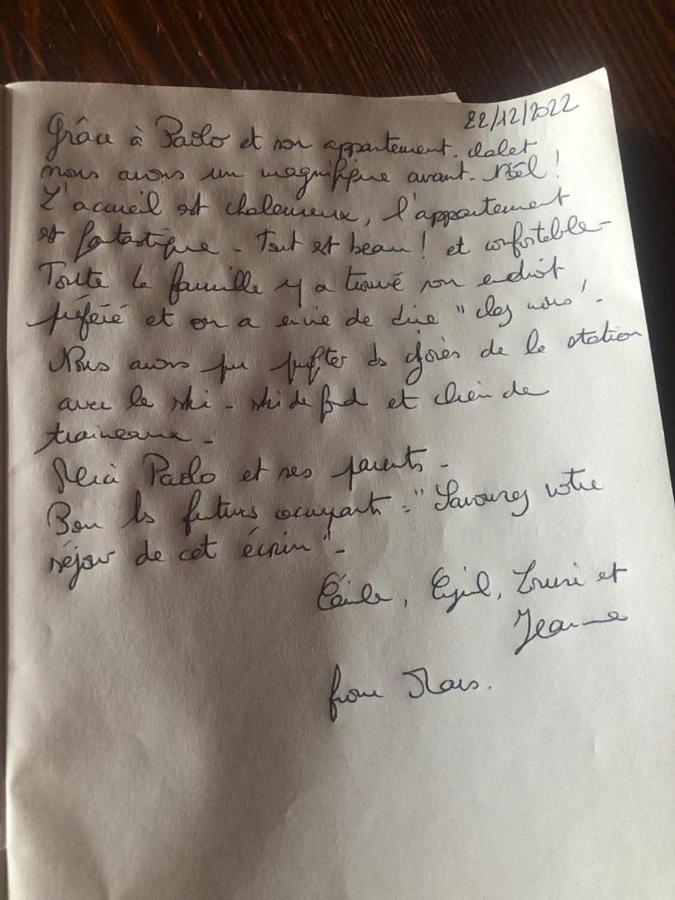 22/12/2022
Grâce à Paolo et son appartement. chalet
nous avons un magnifique avant. Noël !
L'accueil est chaleureux, l'appartement
est fantastique - Tout est beau ! et confortable -
Toute la famille y a trouvé son endroit
préféré et on a envie de dire "chez nous".
Nous avons pu profiter des joies de la station
avec le ski - ski de fond et chien de
traineaux -
Merci Paolo et ses parents -
Pour les futurs occupants : "Savourez votre
séjour de cet écrin" -
Cécile, Cyril, et
Jeanne
from